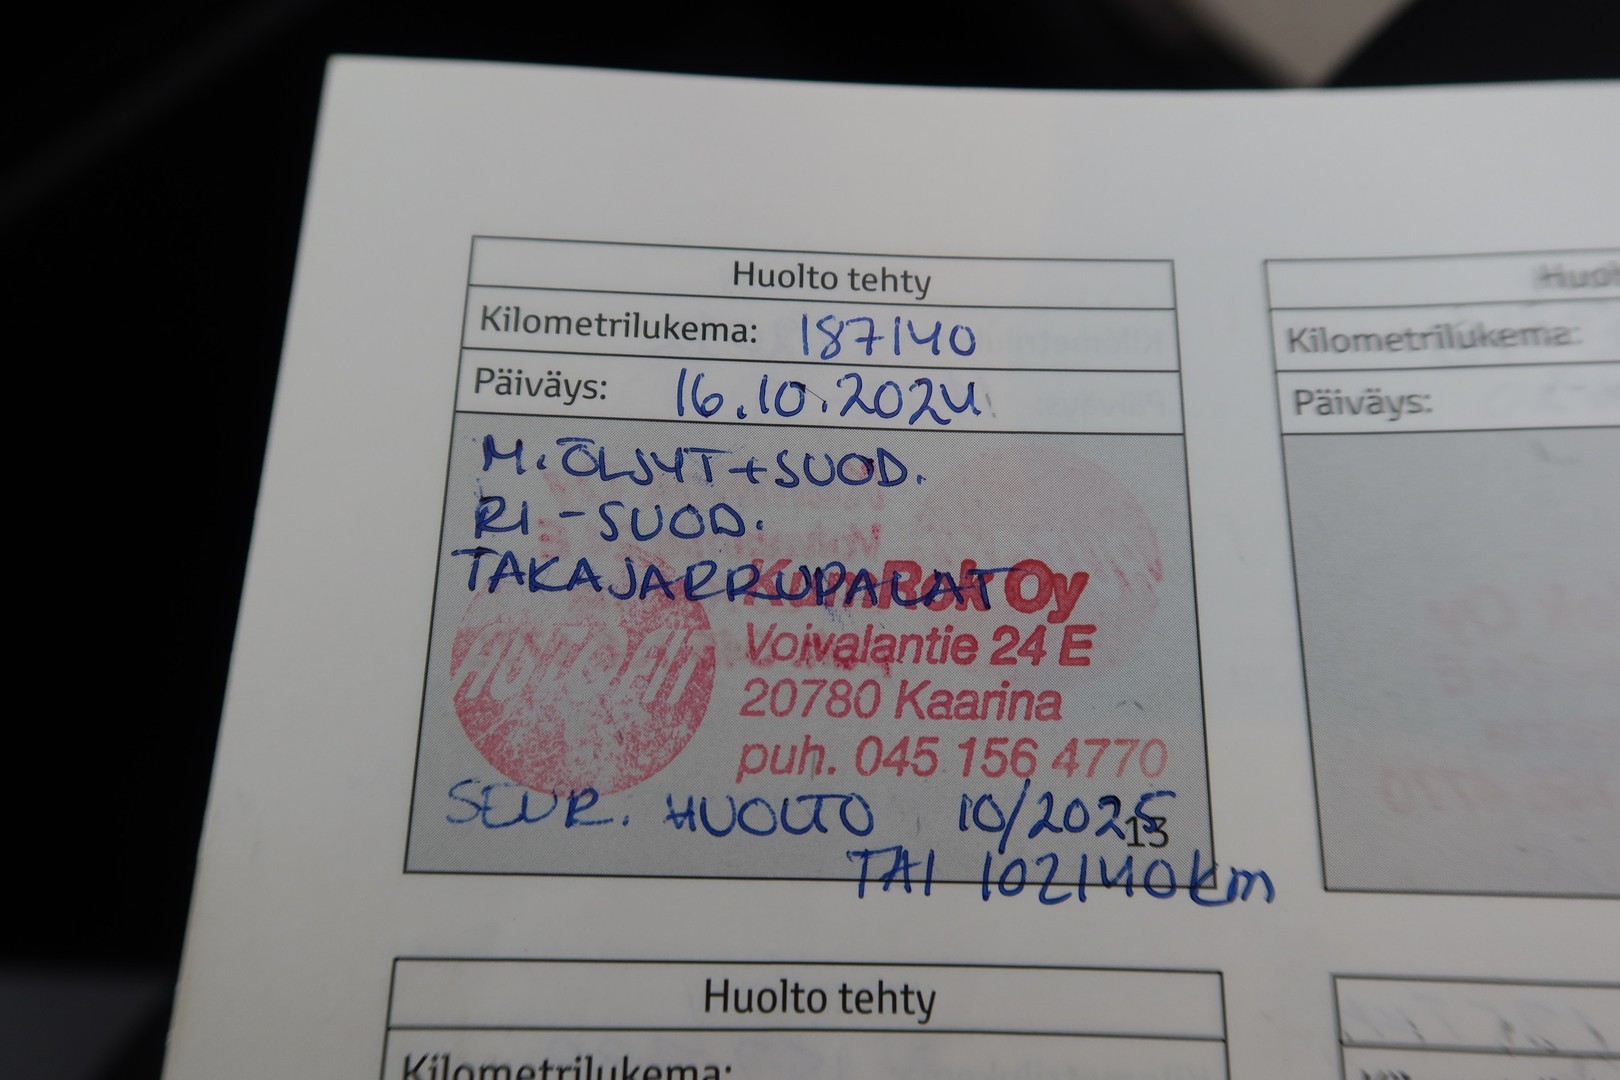 Huolto tehty
Kilometrilukema: 187140
Päiväys: 16.10.2024
M. ÖLJYT + SUOD.
RI - SUOD.
TAKAJARRUPALAT
KumRok Oy
AUTOFIT
Voivalantie 24 E
20780 Kaarina
puh. 045 156 4770
SEUR. HUOLTO 10/2025
13
TAI 102140 km
Kilometrilukema:
Päiväys:
Huolto tehty
Kilometrilukema: